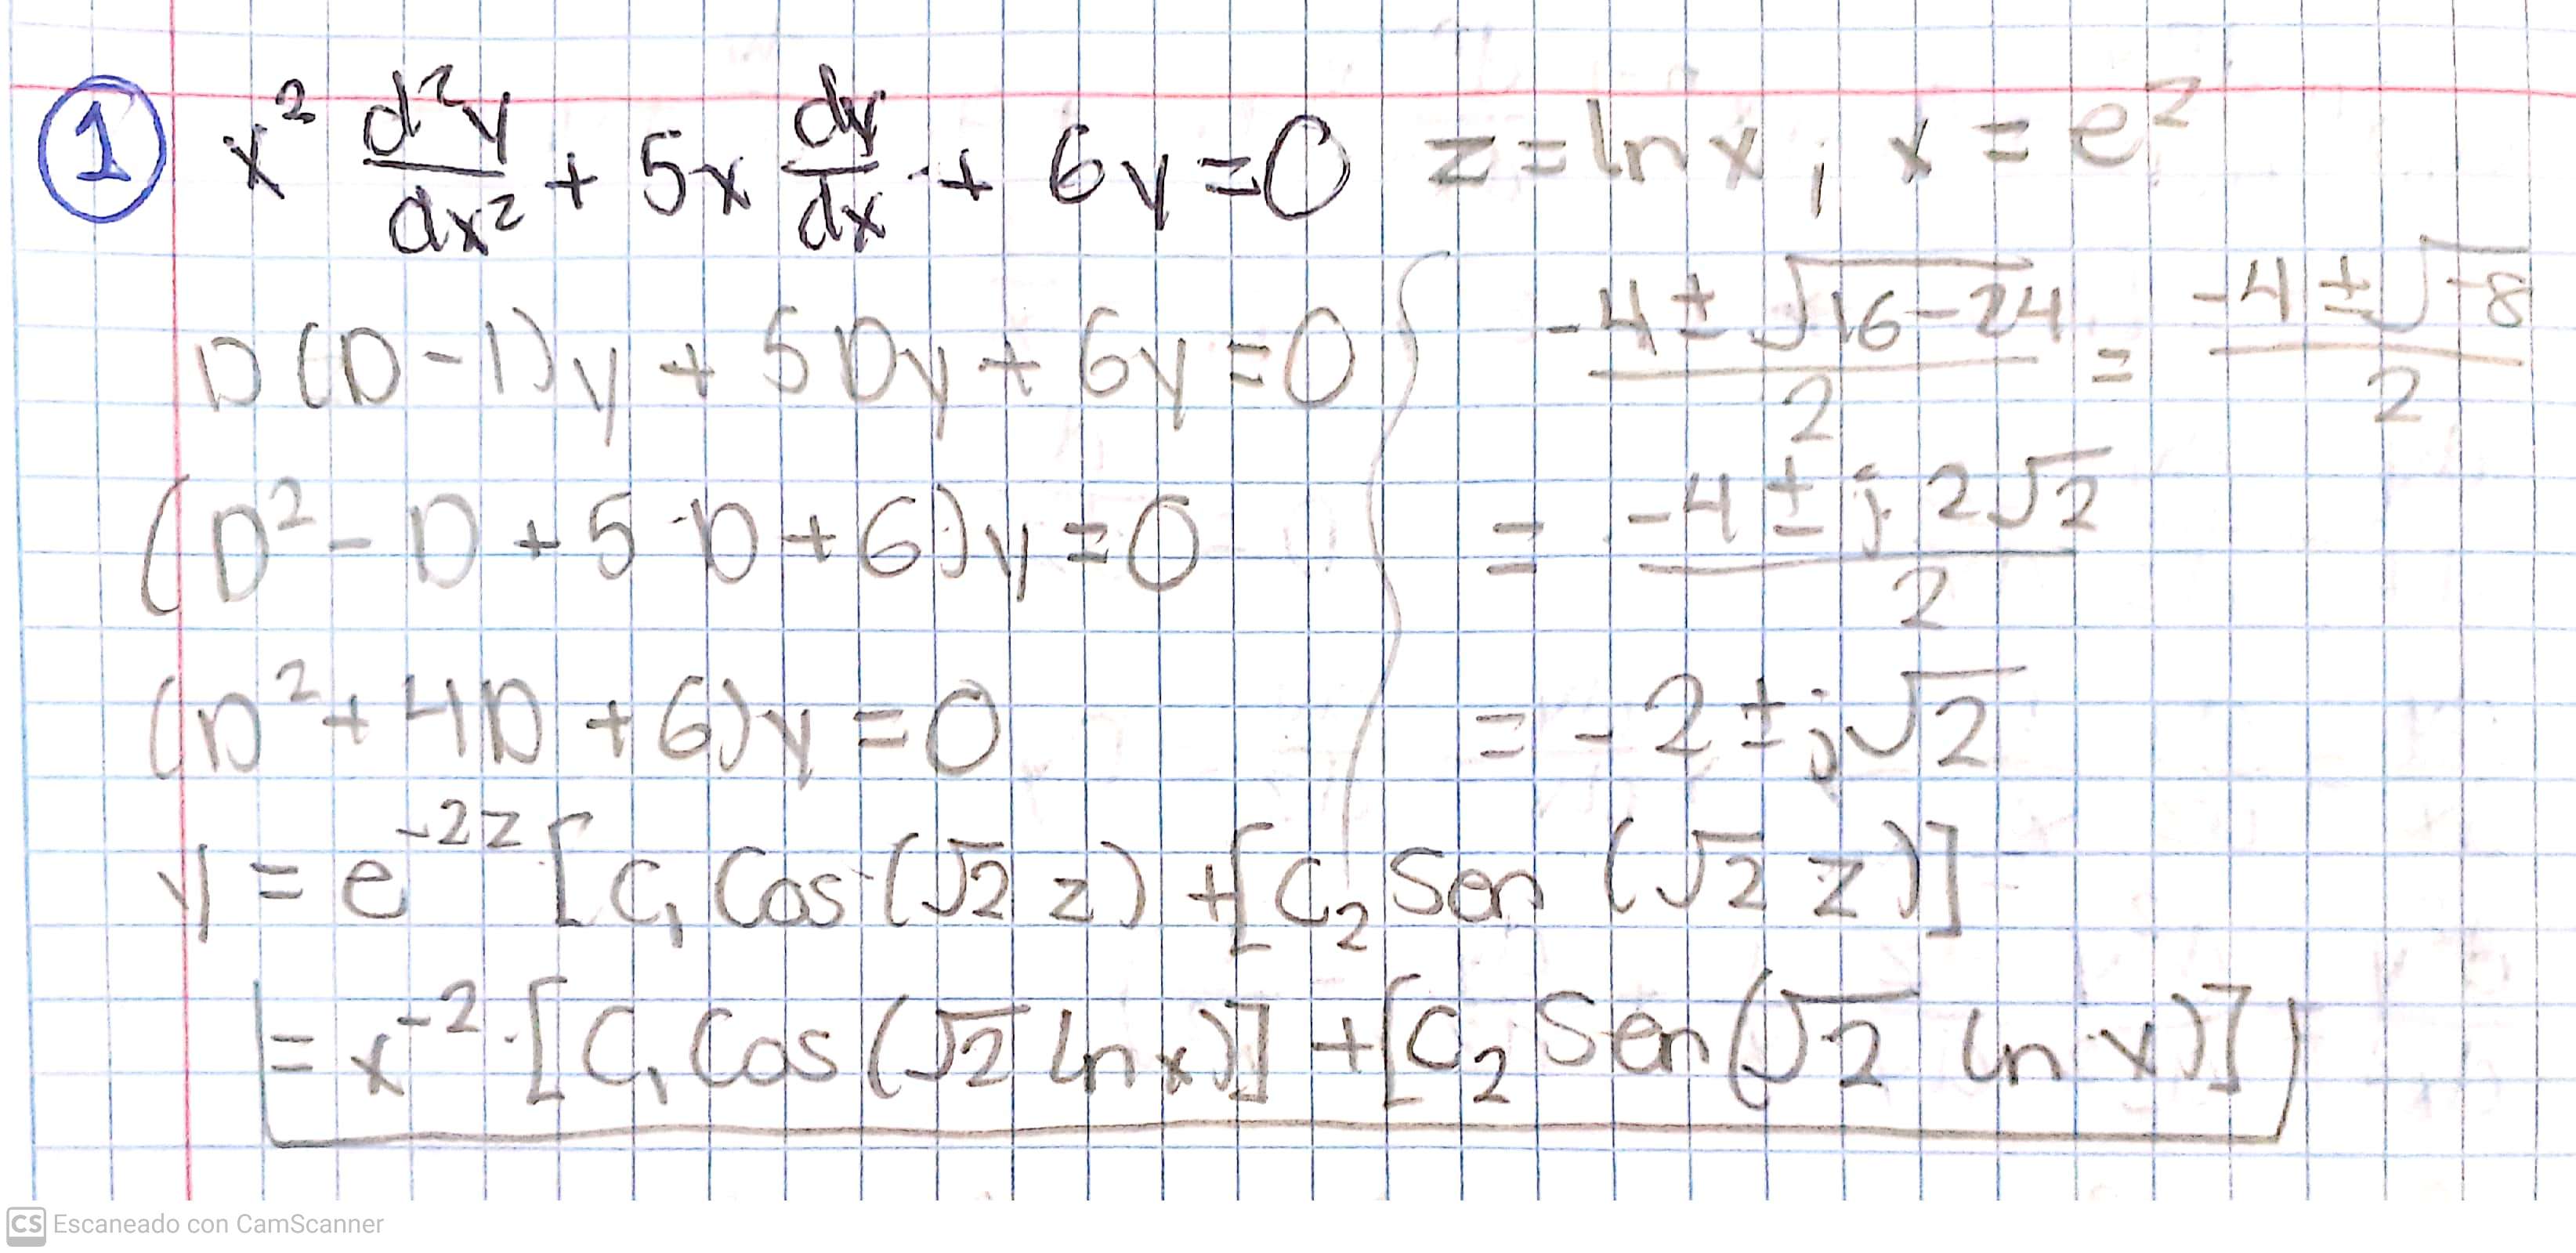 ① x² d²y/dx² + 5x dy/dx + 6y = 0   z = ln x ; x = e^z
D(D-1)y + 5Dy + 6y = 0   (-4 ± √(16-24))/2 = (-4 ± √-8)/2
(D² - D + 5D + 6)y = 0   = (-4 ± j 2√2)/2
(D² + 4D + 6)y = 0   = -2 ± j√2
y = e^(-2z) [C₁ Cos (√2 z) + [C₂ Sen (√2 z)]
= x^(-2) · [C₁ Cos (√2 ln x)] + [C₂ Sen (√2 ln x)]
CS Escaneado con CamScanner